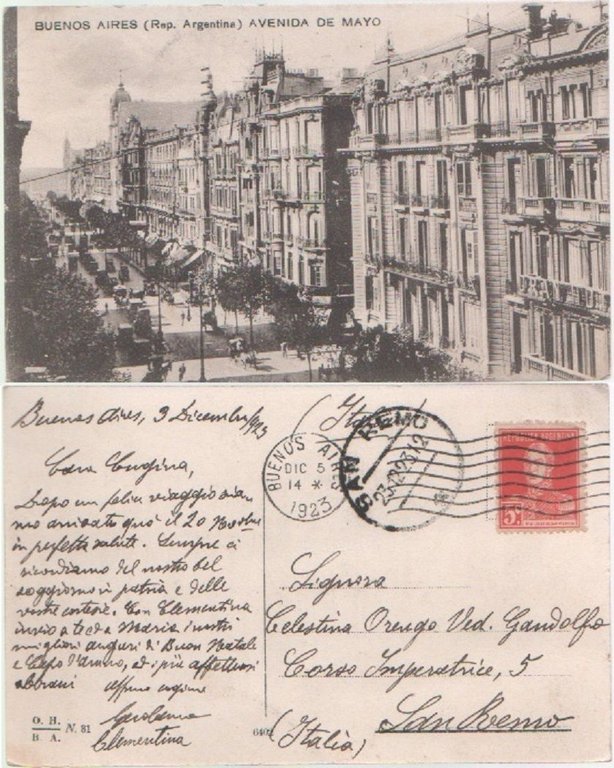 BUENOS AIRES (Rep. Argentina) AVENIDA DE MAYO
Buenos Aires, 3 Dicembre 1923
(Italia)
Cara Cugina,
Dopo un felice viaggio sia-
mo arrivati quà il 20 Novbre
in perfetta salute. Sempre ci
ricordiamo del nostro bel
soggiorno in patria e delle
vostre cortesie. Con Clementina
invio a te ed a Maria i nostri
migliori auguri di Buon Natale
e Capo d'anno, ed i più affettuosi
abbracci
affmo cugino
Clementina
O. H.
B. A.
N. 81
BUENOS AIRES
DIC 5
14 *
1923
SAN REMO
23.12
REPUBLICA ARGENTINA
5
Signora
Celestina Orengo Ved. Gandolfo
Corso Imperatrice, 5
San Remo
(Italia)